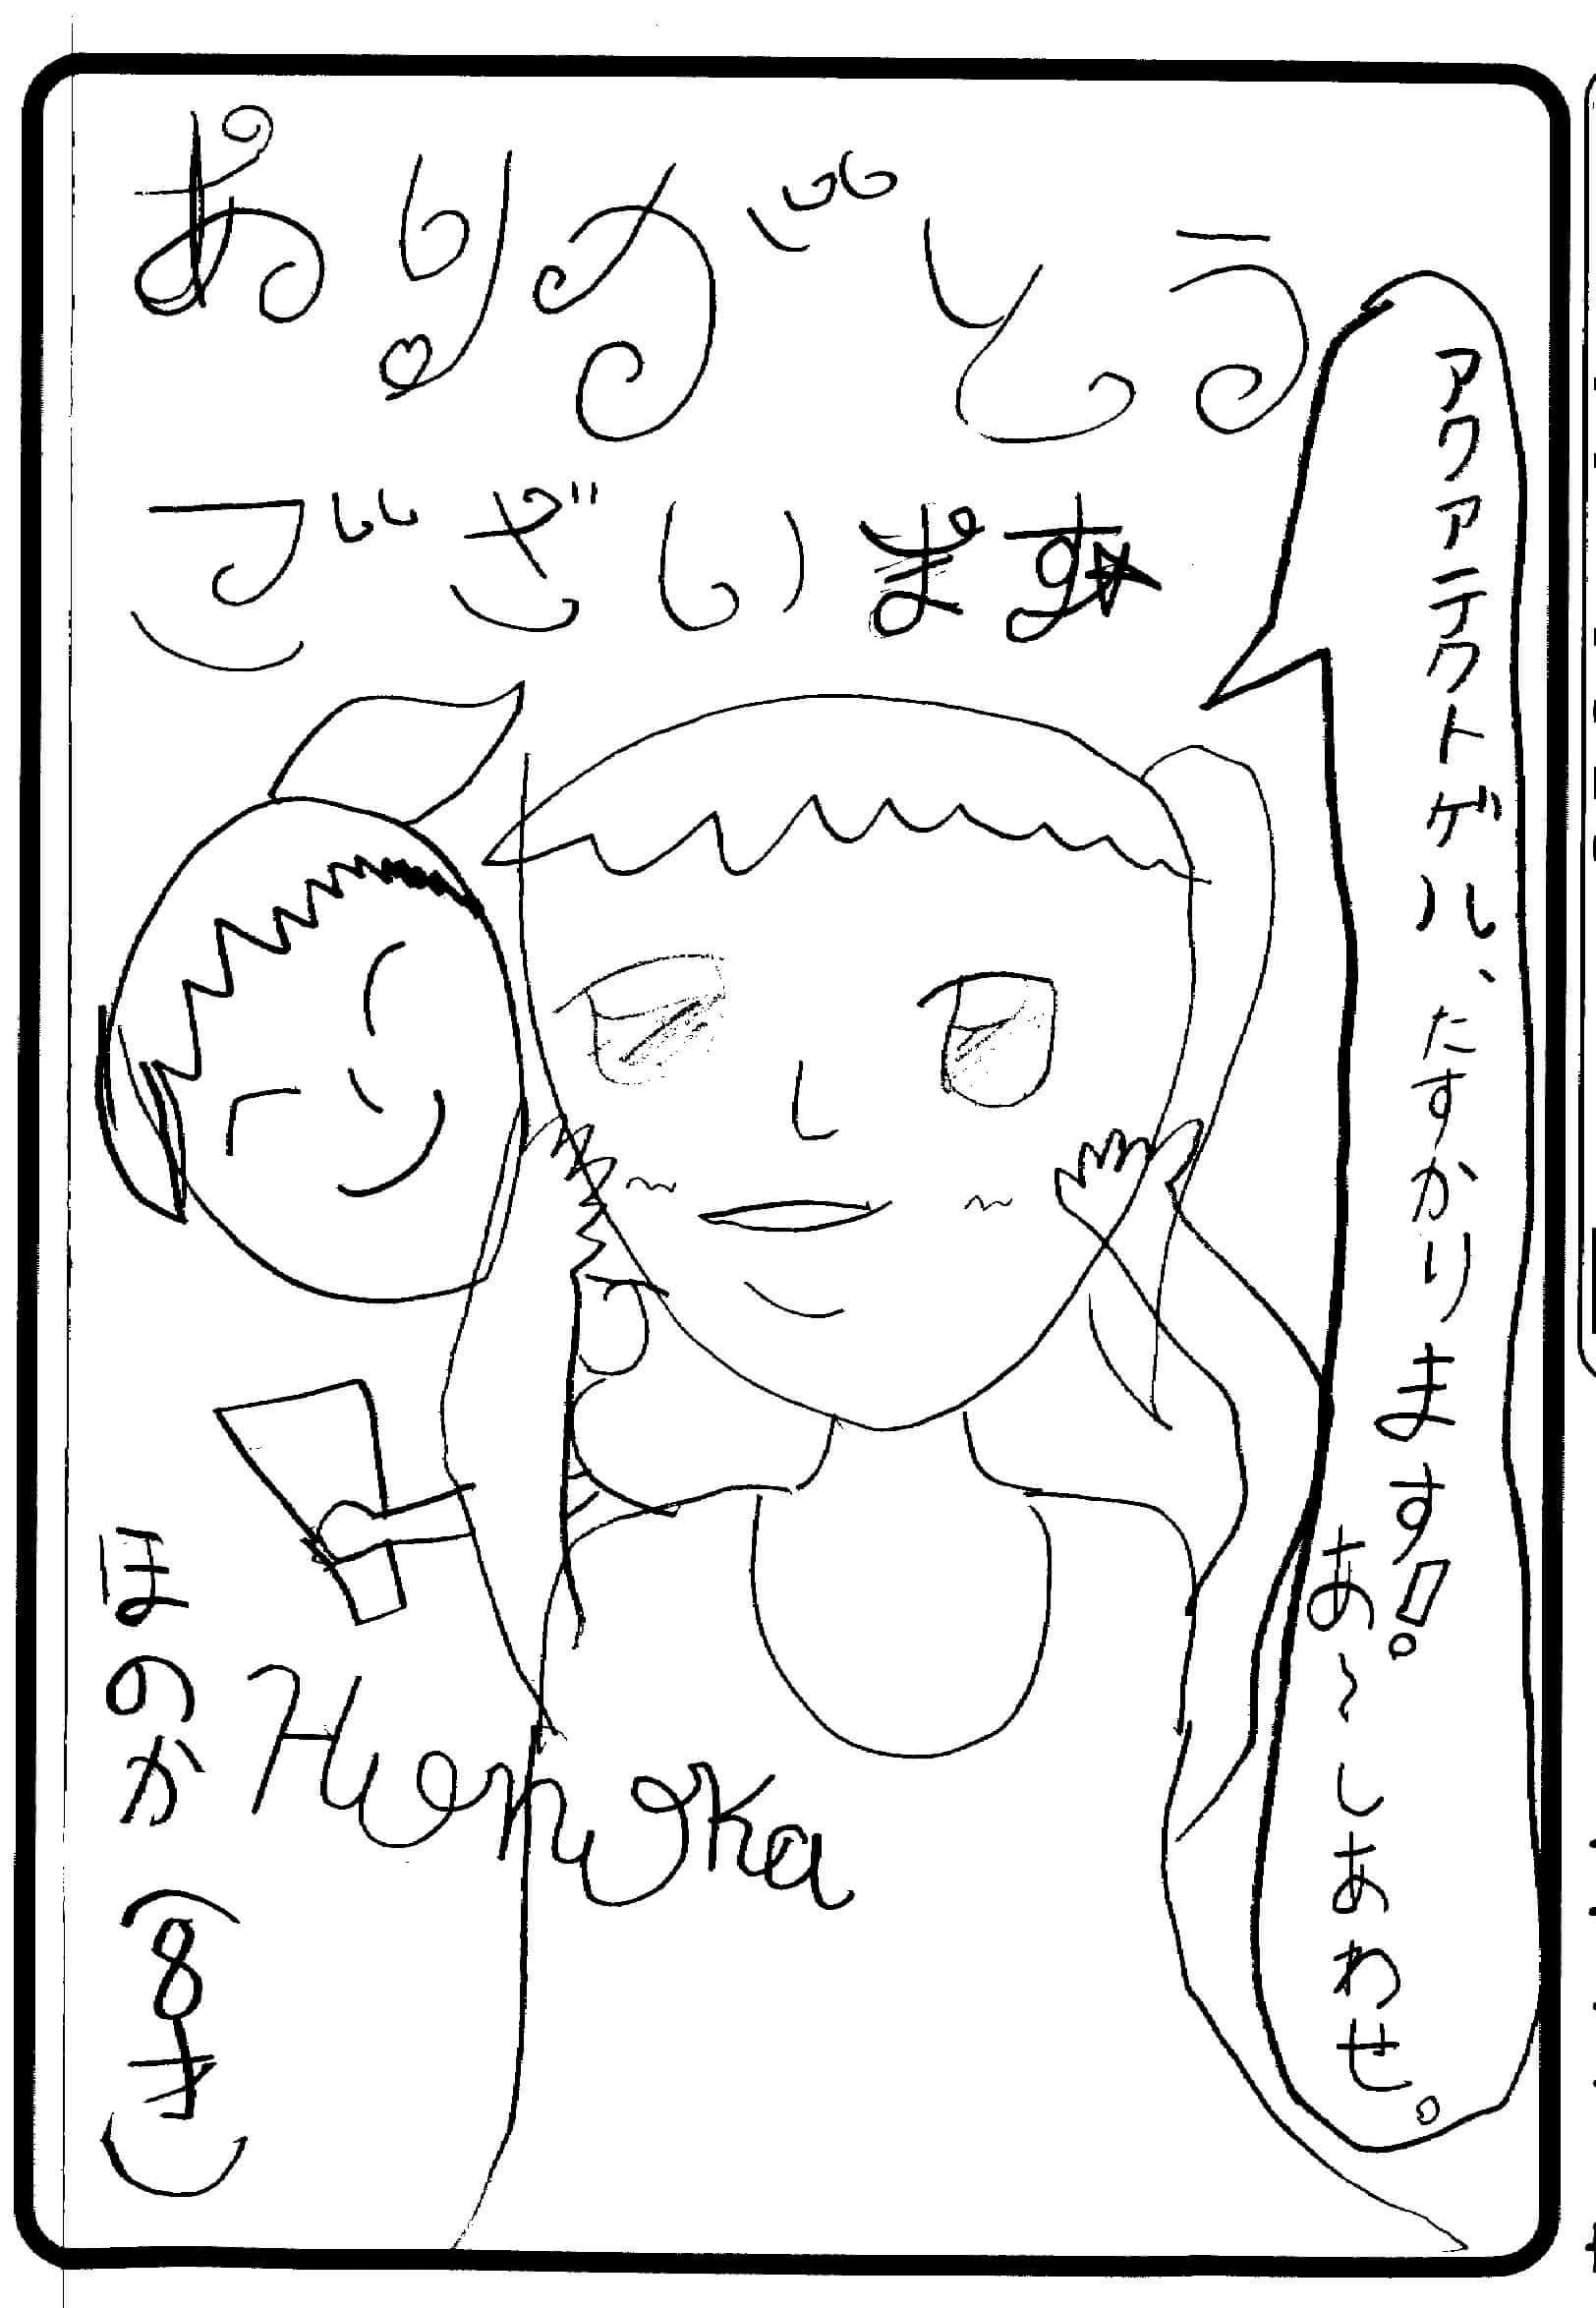 ありがとう
ございます☆
アクアテクトゲル、たすかります!。
あ~しあわせ。
ほのか(8さい)
Honoka